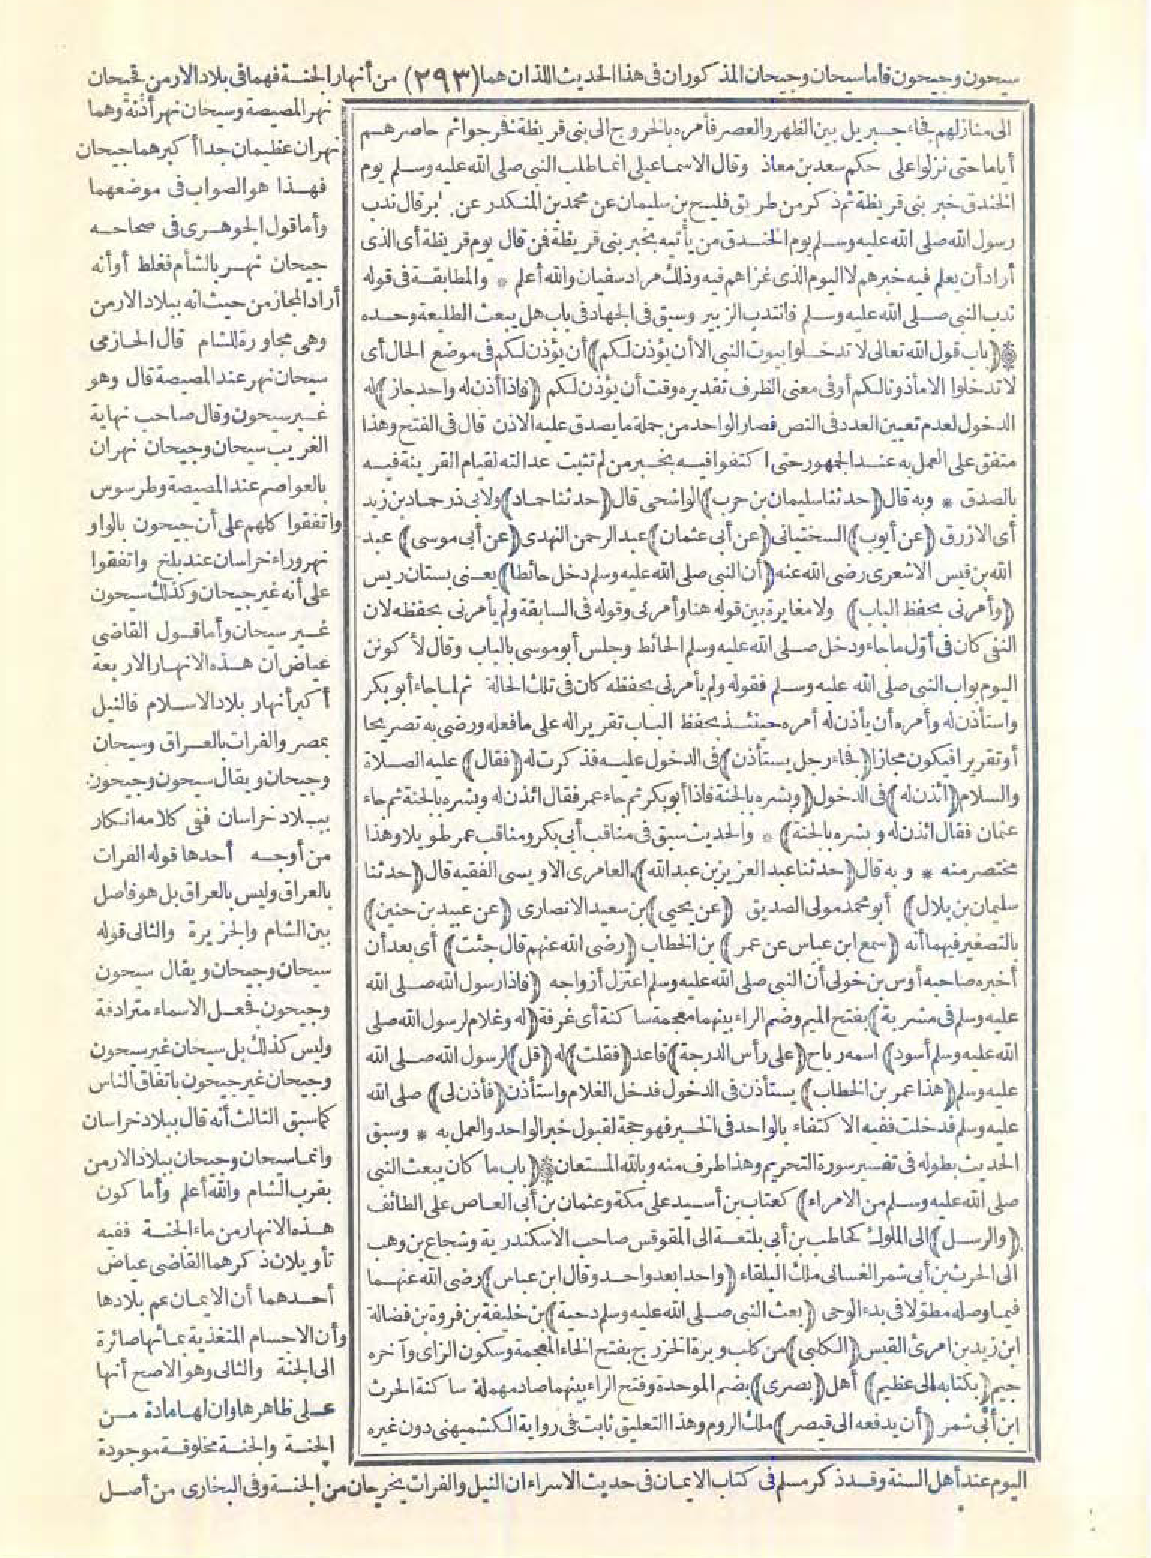 سيحون وجيحون فأما سيحان وجيحان المذكوران فى هذا الحديث اللذان هما (٢٩٣) من أنهار الجنة فهما فى بلاد الارمن فجيحان
نهر المصيصة وسيحان نهر أذنة وهما
نهران عظيمان جدا أكبرهما جيحان
فهذا هو الصواب فى موضعهما
وأما قول الجوهرى فى صحاحه
جيحان نهر بالشأم فغلط أو أنه
أراد المجاز من حيث انه ببلاد الارمن
وهى مجاورة للشام قال الحازمى
سيحان نهر عند المصيصة قال وهو
غير سيحون وقال صاحب نهاية
الغريب سيحان وجيحان نهران
بالعواصم عند المصيصة وطرسوس
واتفقوا كلهم على أن جيحون بالواو
نهر وراء خراسان عند بلخ واتفقوا
على أنه غير جيحان وكذلك سيحون
غير سيحان وأما قول القاضى
عياض ان هذه الانهار الاربعة
أكبر أنهار بلاد الاسلام فالنيل
بمصر والفرات بالعراق وسيحان
وجيحان ويقال سيحون وجيحون
ببلاد خراسان ففى كلامه انكار
من أوجه أحدها قوله الفرات
بالعراق وليس بالعراق بل هو فاصل
بين الشام والجزيرة والثانى قوله
سيحان وجيحان ويقال سيحون
وجيحون فجعل الاسماء مترادفة
وليس كذلك بل سيحان غير سيحون
وجيحان غير جيحون باتفاق الناس
كما سبق الثالث أنه قال ببلاد خراسان
وانما سيحان وجيحان ببلاد الارمن
بقرب الشام والله أعلم وأما كون
هذه الانهار من ماء الجنة ففيه
تأويلان ذكرهما القاضى عياض
أحدهما أن الايمان عم بلادها
وأن الاجسام المتغذية بمائها صائرة
الى الجنة والثانى وهو الاصح أنها
على ظاهرها وان لها مادة من
الجنة والجنة مخلوقة موجودة
الى منازلهم فجاء جبريل بين الظهر والعصر فأمره بالخروج الى بنى قريظة فخرجوا ثم حاصرهم
أياما حتى نزلوا على حكم سعد بن معاذ وقال الاسماعيلى انما طلب النبى صلى الله عليه وسلم يوم
الخندق خبر بنى قريظة ثم ذكر من طريق فليح بن سليمان عن محمد بن المنكدر عن جابر قال ندب
رسول الله صلى الله عليه وسلم يوم الخندق من يأتيه بخبر بنى قريظة فمن قال يوم قريظة أى الذى
أراد أن يعلم فيه خبرهم لا اليوم الذى غزاهم فيه وذلك مراد سفيان والله أعلم * والمطابقة فى قوله
ندب النبى صلى الله عليه وسلم فانتدب الزبير وسبق فى الجهاد فى باب هل يبعث الطليعة وحده
(باب قول الله تعالى لا تدخلوا بيوت النبى الا أن يؤذن لكم) أن يؤذن لكم فى موضع الحال أى
لا تدخلوا الا مأذونا لكم أو فى معنى الظرف تقديره وقت أن يؤذن لكم (فاذا أذن له واحد جاز) له
الدخول لعدم تعيين العدد فى النص فصار الواحد من جملة ما يصدق عليه الاذن قال فى الفتح وهذا
متفق على العمل به عند الجمهور حتى اكتفوا فيه بخبر من لم تثبت عدالته لقيام القرينة فيه
بالصدق * وبه قال (حدثنا سليمان بن حرب) الواشحى قال (حدثنا حماد) ولابى ذر حماد بن زيد
أى الازرق (عن أيوب) السختيانى (عن أبى عثمان) عبد الرحمن النهدى (عن أبى موسى) عبد
الله بن قيس الاشعرى رضى الله عنه (أن النبى صلى الله عليه وسلم دخل حائطا) يعنى بستان ريس
(وأمرنى بحفظ الباب) ولا مغايرة بين قوله هنا وأمرنى وقوله فى السابقة ولم يأمرنى بحفظه لان
النفى كان فى أول ما جاء ودخل صلى الله عليه وسلم الحائط وجلس أبو موسى بالباب وقال لأكونن
اليوم بواب النبى صلى الله عليه وسلم فقوله ولم يأمرنى بحفظه كان فى تلك الحالة ثم لما جاء أبو بكر
واستأذن له وأمره أن يأذن له أمره حينئذ بحفظ الباب تقريرا له على ما فعله ورضى به تصريحا
أو تقريرا فيكون مجازا (فجاء رجل يستأذن) فى الدخول عليه فذكرت له (فقال) عليه الصلاة
والسلام (ائذن له) فى الدخول (وبشره بالجنة فاذا أبو بكر ثم جاء عمر فقال ائذن له وبشره بالجنة ثم جاء
عثمان فقال ائذن له وبشره بالجنة) * والحديث سبق فى مناقب أبى بكر ومناقب عمر طويلا وهذا
مختصر منه * وبه قال (حدثنا عبد العزيز بن عبد الله) العامرى الاويسى الفقيه قال (حدثنا
سليمان بن بلال) أبو محمد مولى الصديق (عن يحيى) بن سعيد الانصارى (عن عبيد بن حنين)
بالتصغير فيهما أنه (سمع ابن عباس عن عمر) بن الخطاب (رضى الله عنهم قال جئت) أى بعد أن
أخبره صاحبه أوس بن خولى أن النبى صلى الله عليه وسلم اعتزل أزواجه (فاذا رسول الله صلى الله
عليه وسلم فى مشربة) بفتح الميم وضم الراء بينهما معجمة ساكنة أى غرفة (له وغلام لرسول الله صلى
الله عليه وسلم أسود) اسمه رباح (على رأس الدرجة) قاعد (فقلت) له (قل) لرسول الله صلى الله
عليه وسلم (هذا عمر بن الخطاب) يستأذن فى الدخول فدخل الغلام واستأذن (فأذن لى) صلى الله
عليه وسلم فدخلت ففيه الاكتفاء بالواحد فى الخبر فهو حجة لقبول خبر الواحد والعمل به * وسبق
الحديث بطوله فى تفسير سورة التحريم وهذا طرف منه وبالله المستعان (باب ما كان يبعث النبى
صلى الله عليه وسلم من الامراء) كعتاب بن أسيد على مكة وعثمان بن أبى العاص على الطائف
(والرسل) الى الملوك كحاطب بن أبى بلتعة الى المقوقس صاحب الاسكندرية وشجاع بن وهب
الى الحرث بن أبى شمر الغسانى ملك البلقاء (واحدا بعد واحد وقال ابن عباس) رضى الله عنهما
فيما وصله مطولا فى بدء الوحى (بعث النبى صلى الله عليه وسلم دحية) بن خليفة بن فروة بن فضالة
ابن زيد بن امرئ القيس (الكلبى) من كلب وبرة الخزرج بفتح الخاء المعجمة وسكون الزاى وآخره
جيم (بكتابه الى عظيم) أهل (بصرى) بضم الموحدة وفتح الراء بينهما صاد مهملة ساكنة الحرث
ابن أبى شمر (أن يدفعه الى قيصر) ملك الروم وهذا التعليق ثابت فى رواية الكشميهنى دون غيره
اليوم عند أهل السنة وقد ذكر مسلم فى كتاب الايمان فى حديث الاسراء ان النيل والفرات يخرجان من الجنة وفى البخارى من أصل